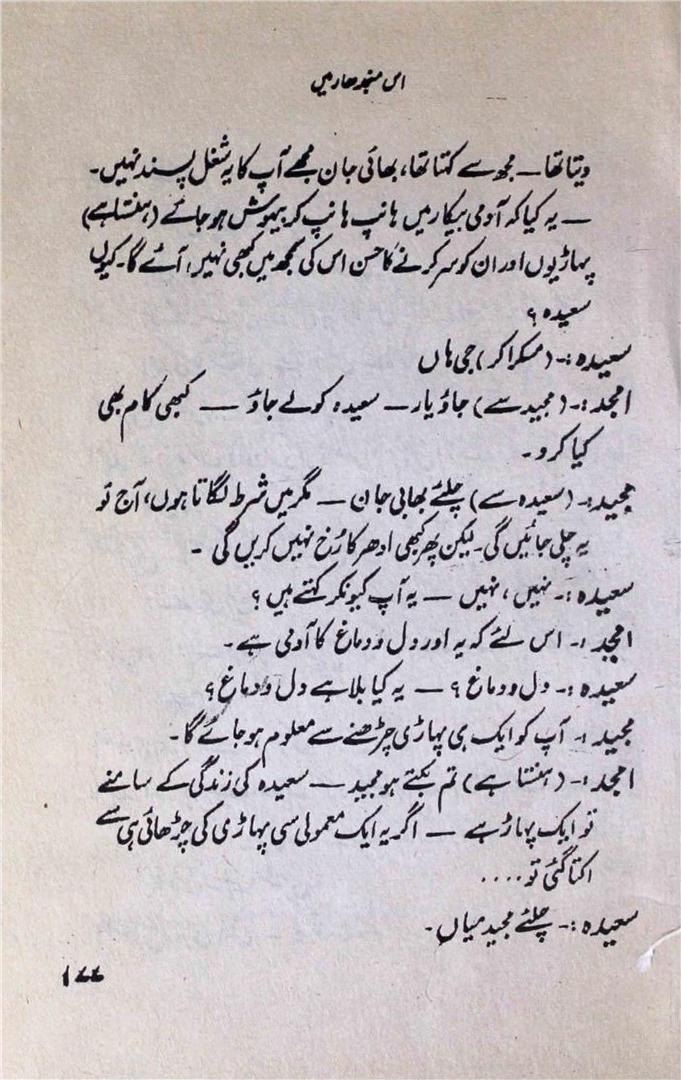 اس منجدھار میں
دیتا تھا ــ مجھ سے کہتا تھا، بھائی جان مجھے آپ کا یہ شغل پسند نہیں۔
ــ یہ کیا کہ آدمی بیکار میں ہانپ ہانپ کر بیہوش ہو جائے (ہنستا ہے)
پہاڑیوں اور ان کو سر کرنے کا حسن اس کی سمجھ میں کبھی نہیں آئے گا۔ کیوں
سعیدہ ؟
سعیدہ :۔ (مسکرا کر) جی ہاں
امجد :۔ (مجید سے) جاؤ یار ــ سعیدہ کو لے جاؤ ــ کبھی کام بھی
کیا کرو ۔
مجید :۔ (سعیدہ سے) چلئے بھابی جان ــ مگر میں شرط لگاتا ہوں، آج تو
یہ چلی جائیں گی۔ لیکن پھر کبھی ادھر کا رُخ نہیں کریں گی ۔
سعیدہ :۔ نہیں ، نہیں ــ یہ آپ کیونکر کہتے ہیں ؟
امجد :۔ اس لئے کہ یہ اور دل و دماغ کا آدمی ہے ۔
سعیدہ :۔ دل و دماغ ؟ ــ یہ کیا بلا ہے دل و دماغ ؟
مجید :۔ آپ کو ایک ہی پہاڑی چڑھنے سے معلوم ہو جائے گا۔
امجد :۔ (ہنستا ہے) تم بکتے ہو مجید ــ سعیدہ کی زندگی کے سامنے
تو ایک پہاڑ ہے ــ اگر یہ ایک معمولی سی پہاڑی کی چڑھائی ہی سے
اکتا گئی تو ....
سعیدہ :۔ چلئے مجید میاں ۔
۱۷۷